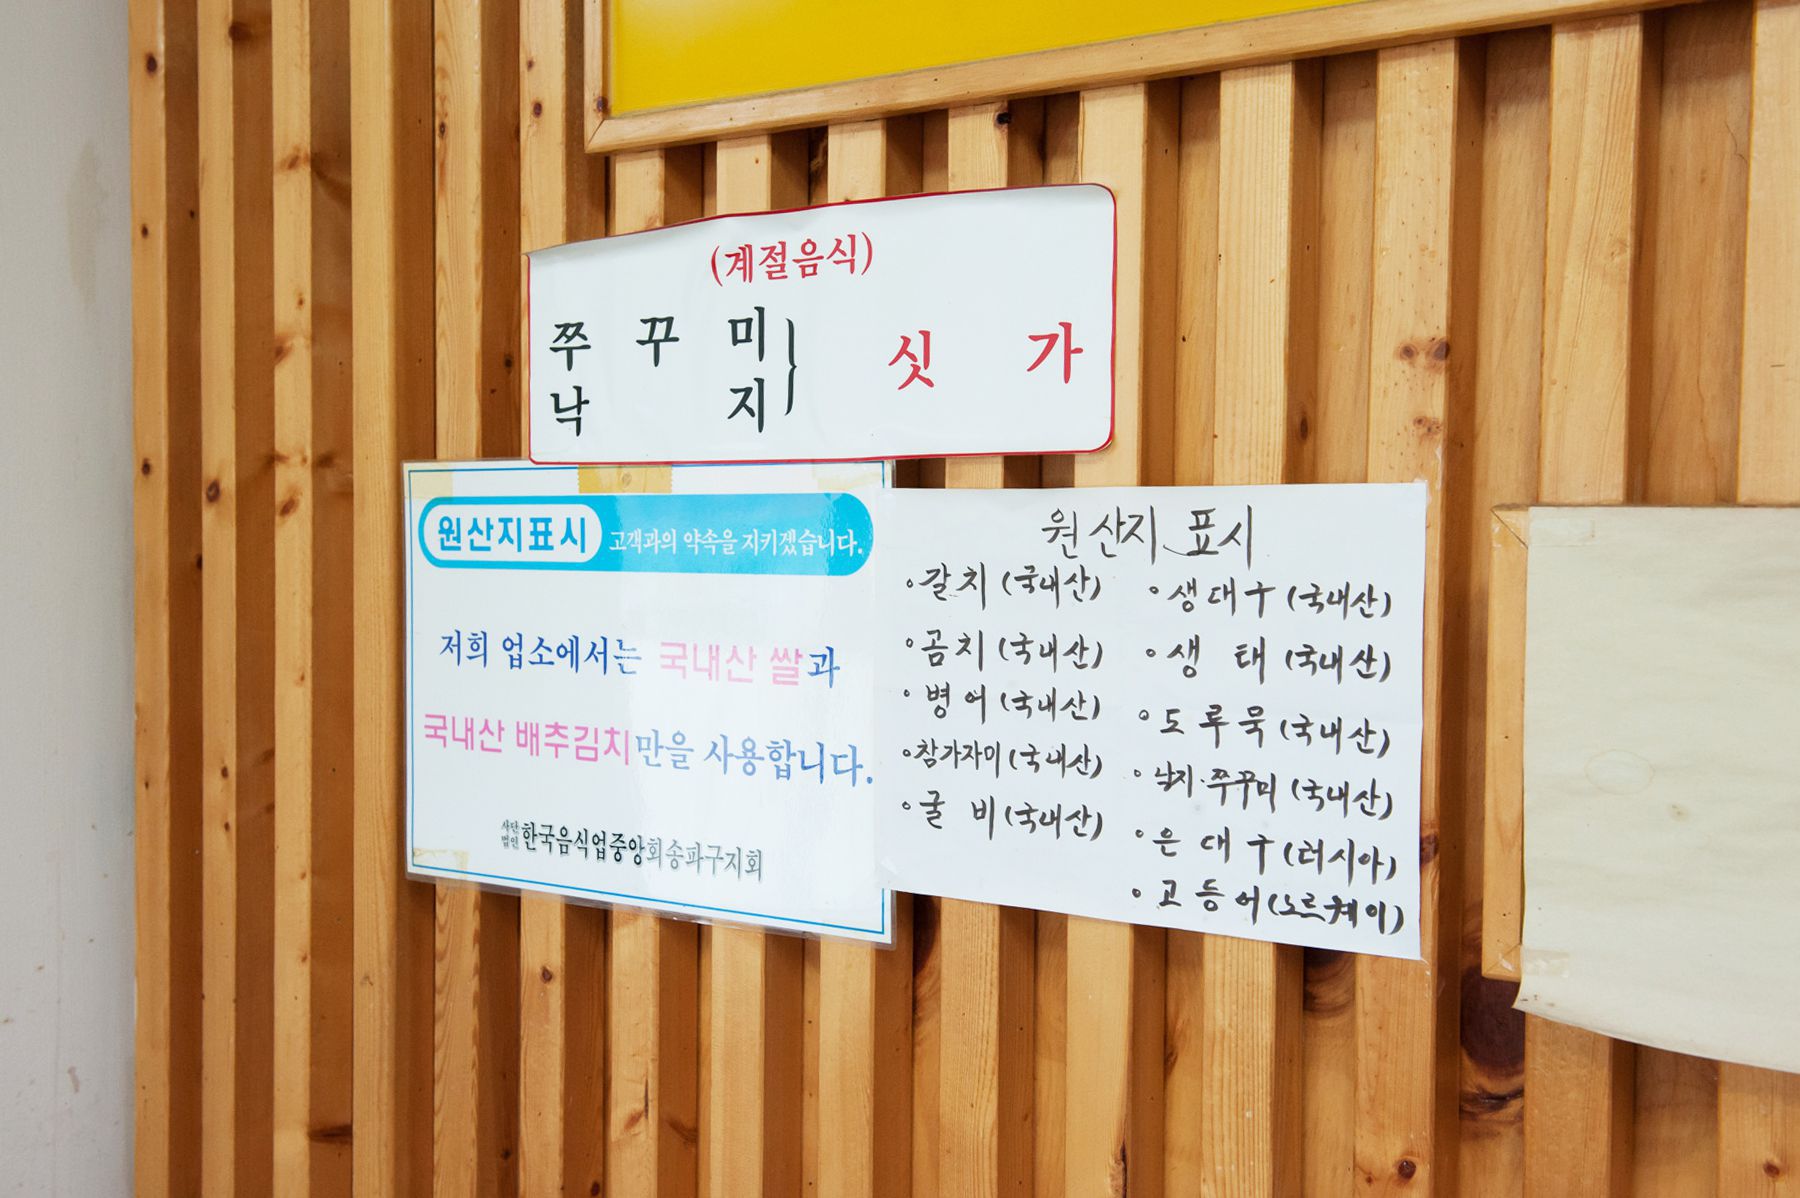 (계절음식)
쭈 꾸 미
낙 지 } 싯 가
원산지표시 고객과의 약속을 지키겠습니다.
저희 업소에서는 국내산 쌀과
국내산 배추김치만을 사용합니다.
사단법인 한국음식업중앙회송파구지회
원산지 표시
•갈치 (국내산)
•곰치 (국내산)
•병어 (국내산)
•참가자미 (국내산)
•굴 비 (국내산)
•생대구 (국내산)
•생 태 (국내산)
•도루묵 (국내산)
•낙지·쭈꾸미 (국내산)
•은 대 구 (러시아)
•고등어 (노르웨이)